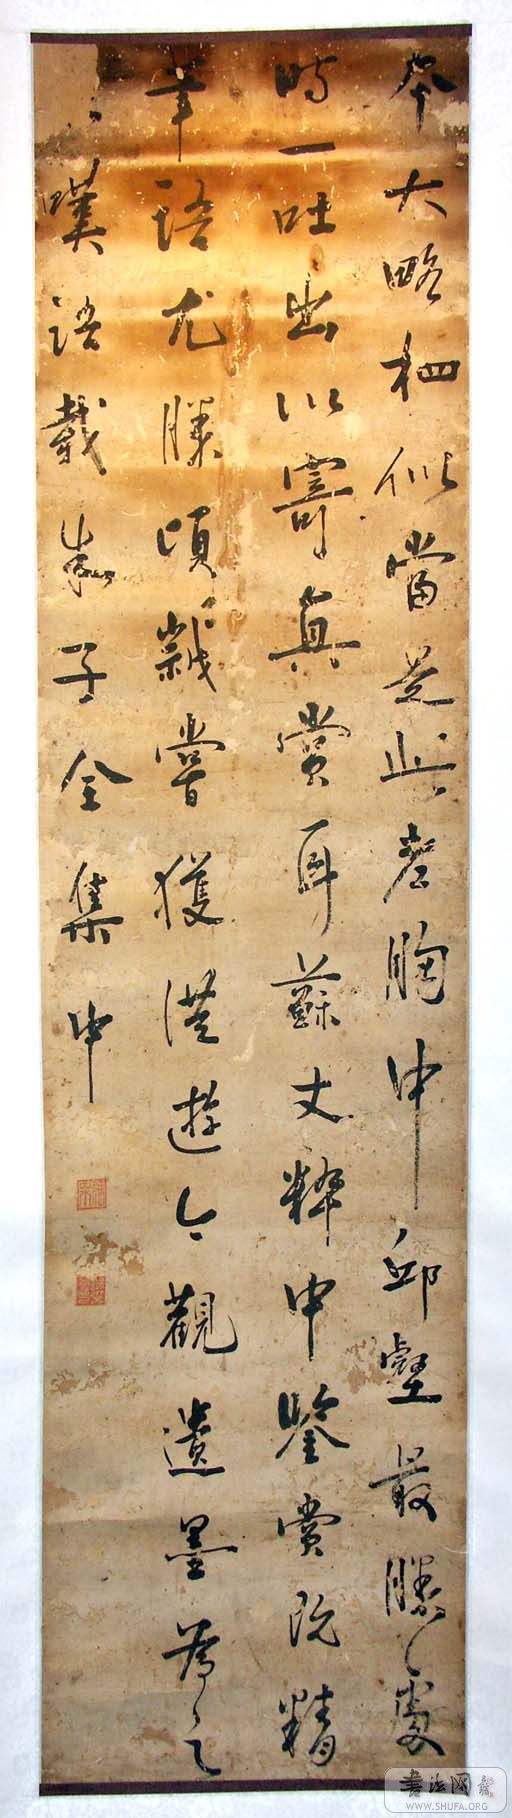 本大略相似當是此老胸中邱壑最勝之處
時一吐出以寄真賞耳蘇丈粹中鑒賞既精
筆語尤勝頃歲嘗獲從遊今觀遺墨為之
嘆語載朱子全集中
書法网
WWW.SHUFA.ORG